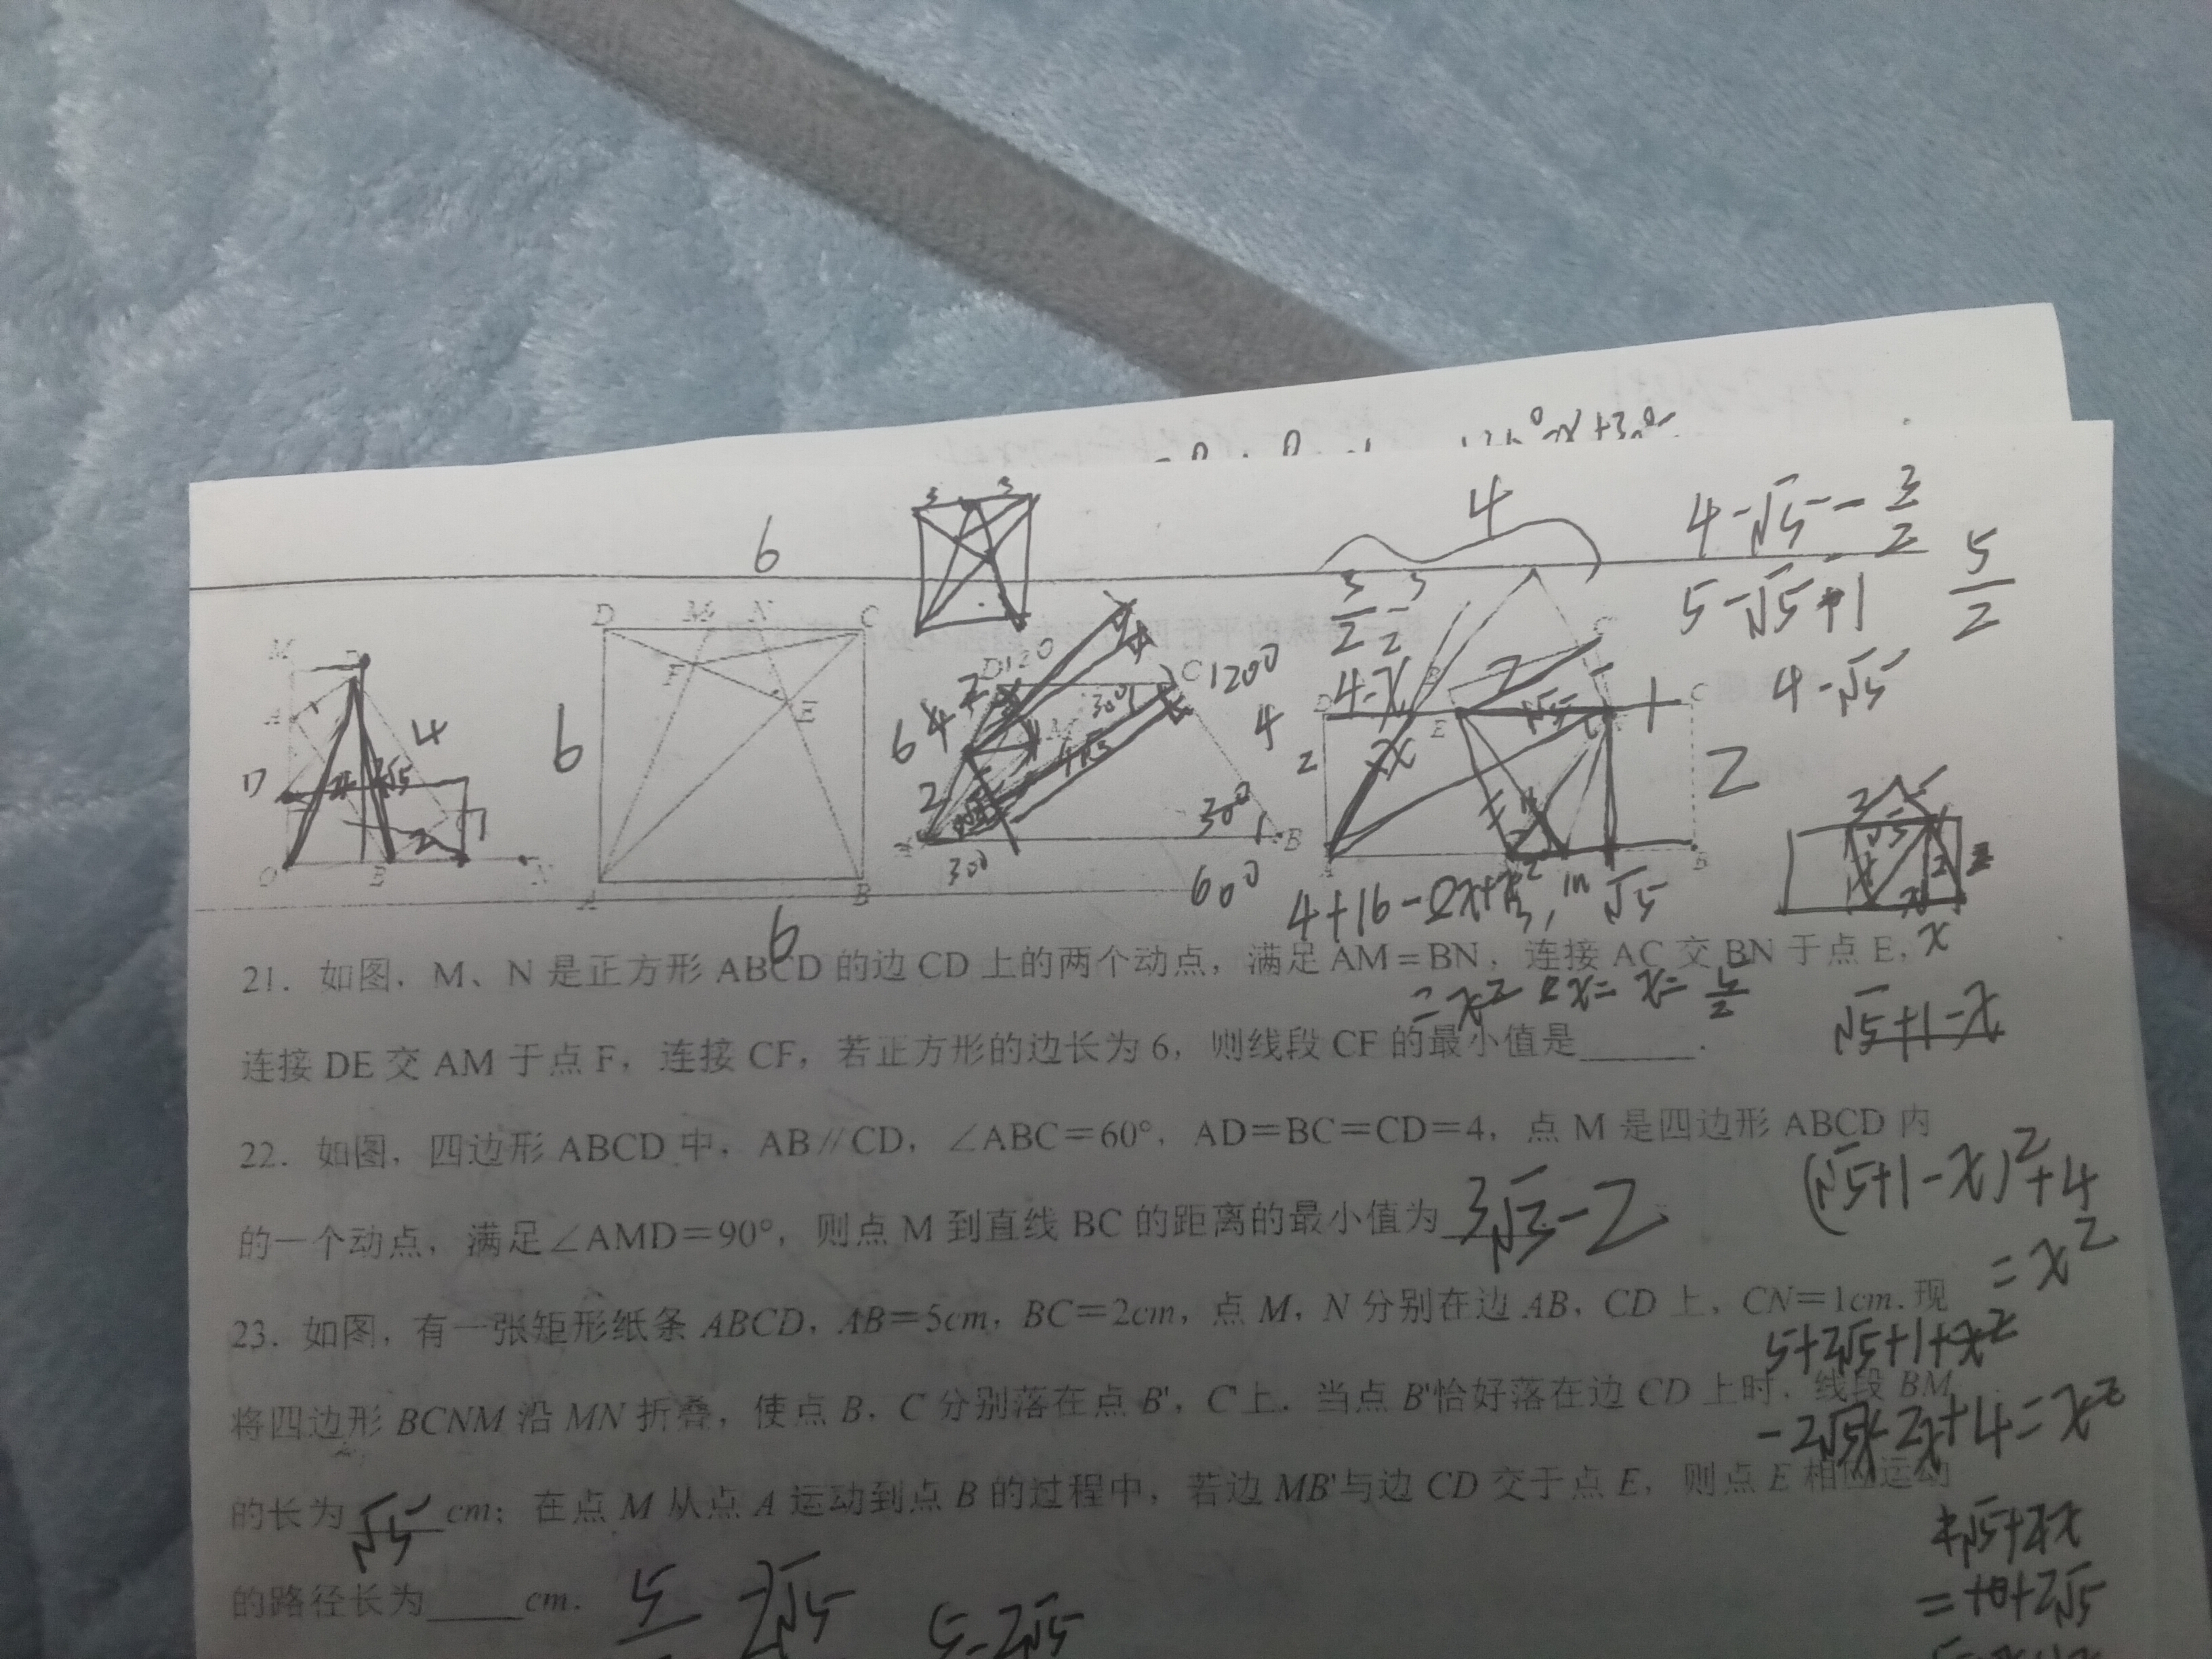 6
3 3
4
4-√5-3/2
5-√5+1
5/2
4-√5
D M N C
F
E
A B
6
6
M
A
D
4
2
O B N
D 120
C 120°
M
30°
4√3
6 4 2
2
30°
30°
B
60°
4
3/2
4-x
x
2
D
E
C'
C
√5
1
2
A
B
4+16-8x+x²
√5
x
=x² 8x= x=5/2
√5+1-x
21. 如图,M、N 是正方形 ABCD 的边 CD 上的两个动点,满足 AM=BN,连接 AC 交 BN 于点 E,
连接 DE 交 AM 于点 F,连接 CF,若正方形的边长为 6,则线段 CF 的最小值是______.
22. 如图,四边形 ABCD 中,AB∥CD,∠ABC=60°,AD=BC=CD=4,点 M 是四边形 ABCD 内
的一个动点,满足∠AMD=90°,则点 M 到直线 BC 的距离的最小值为 3√3-2
(√5+1-x)²+4
=x²
23. 如图,有一张矩形纸条 ABCD,AB=5cm,BC=2cm,点 M,N 分别在边 AB,CD 上,CN=1cm.现
5+2√5+1+x²
将四边形 BCNM 沿 MN 折叠,使点 B,C 分别落在点 B',C'上.当点 B'恰好落在边 CD 上时,线段 BM
-2√5x-2x+4=x²
的长为 √5 cm;在点 M 从点 A 运动到点 B 的过程中,若边 MB'与边 CD 交于点 E,则点 E 相应运动
的路径长为_____cm.
2√5
5-2√5
=10+2√5